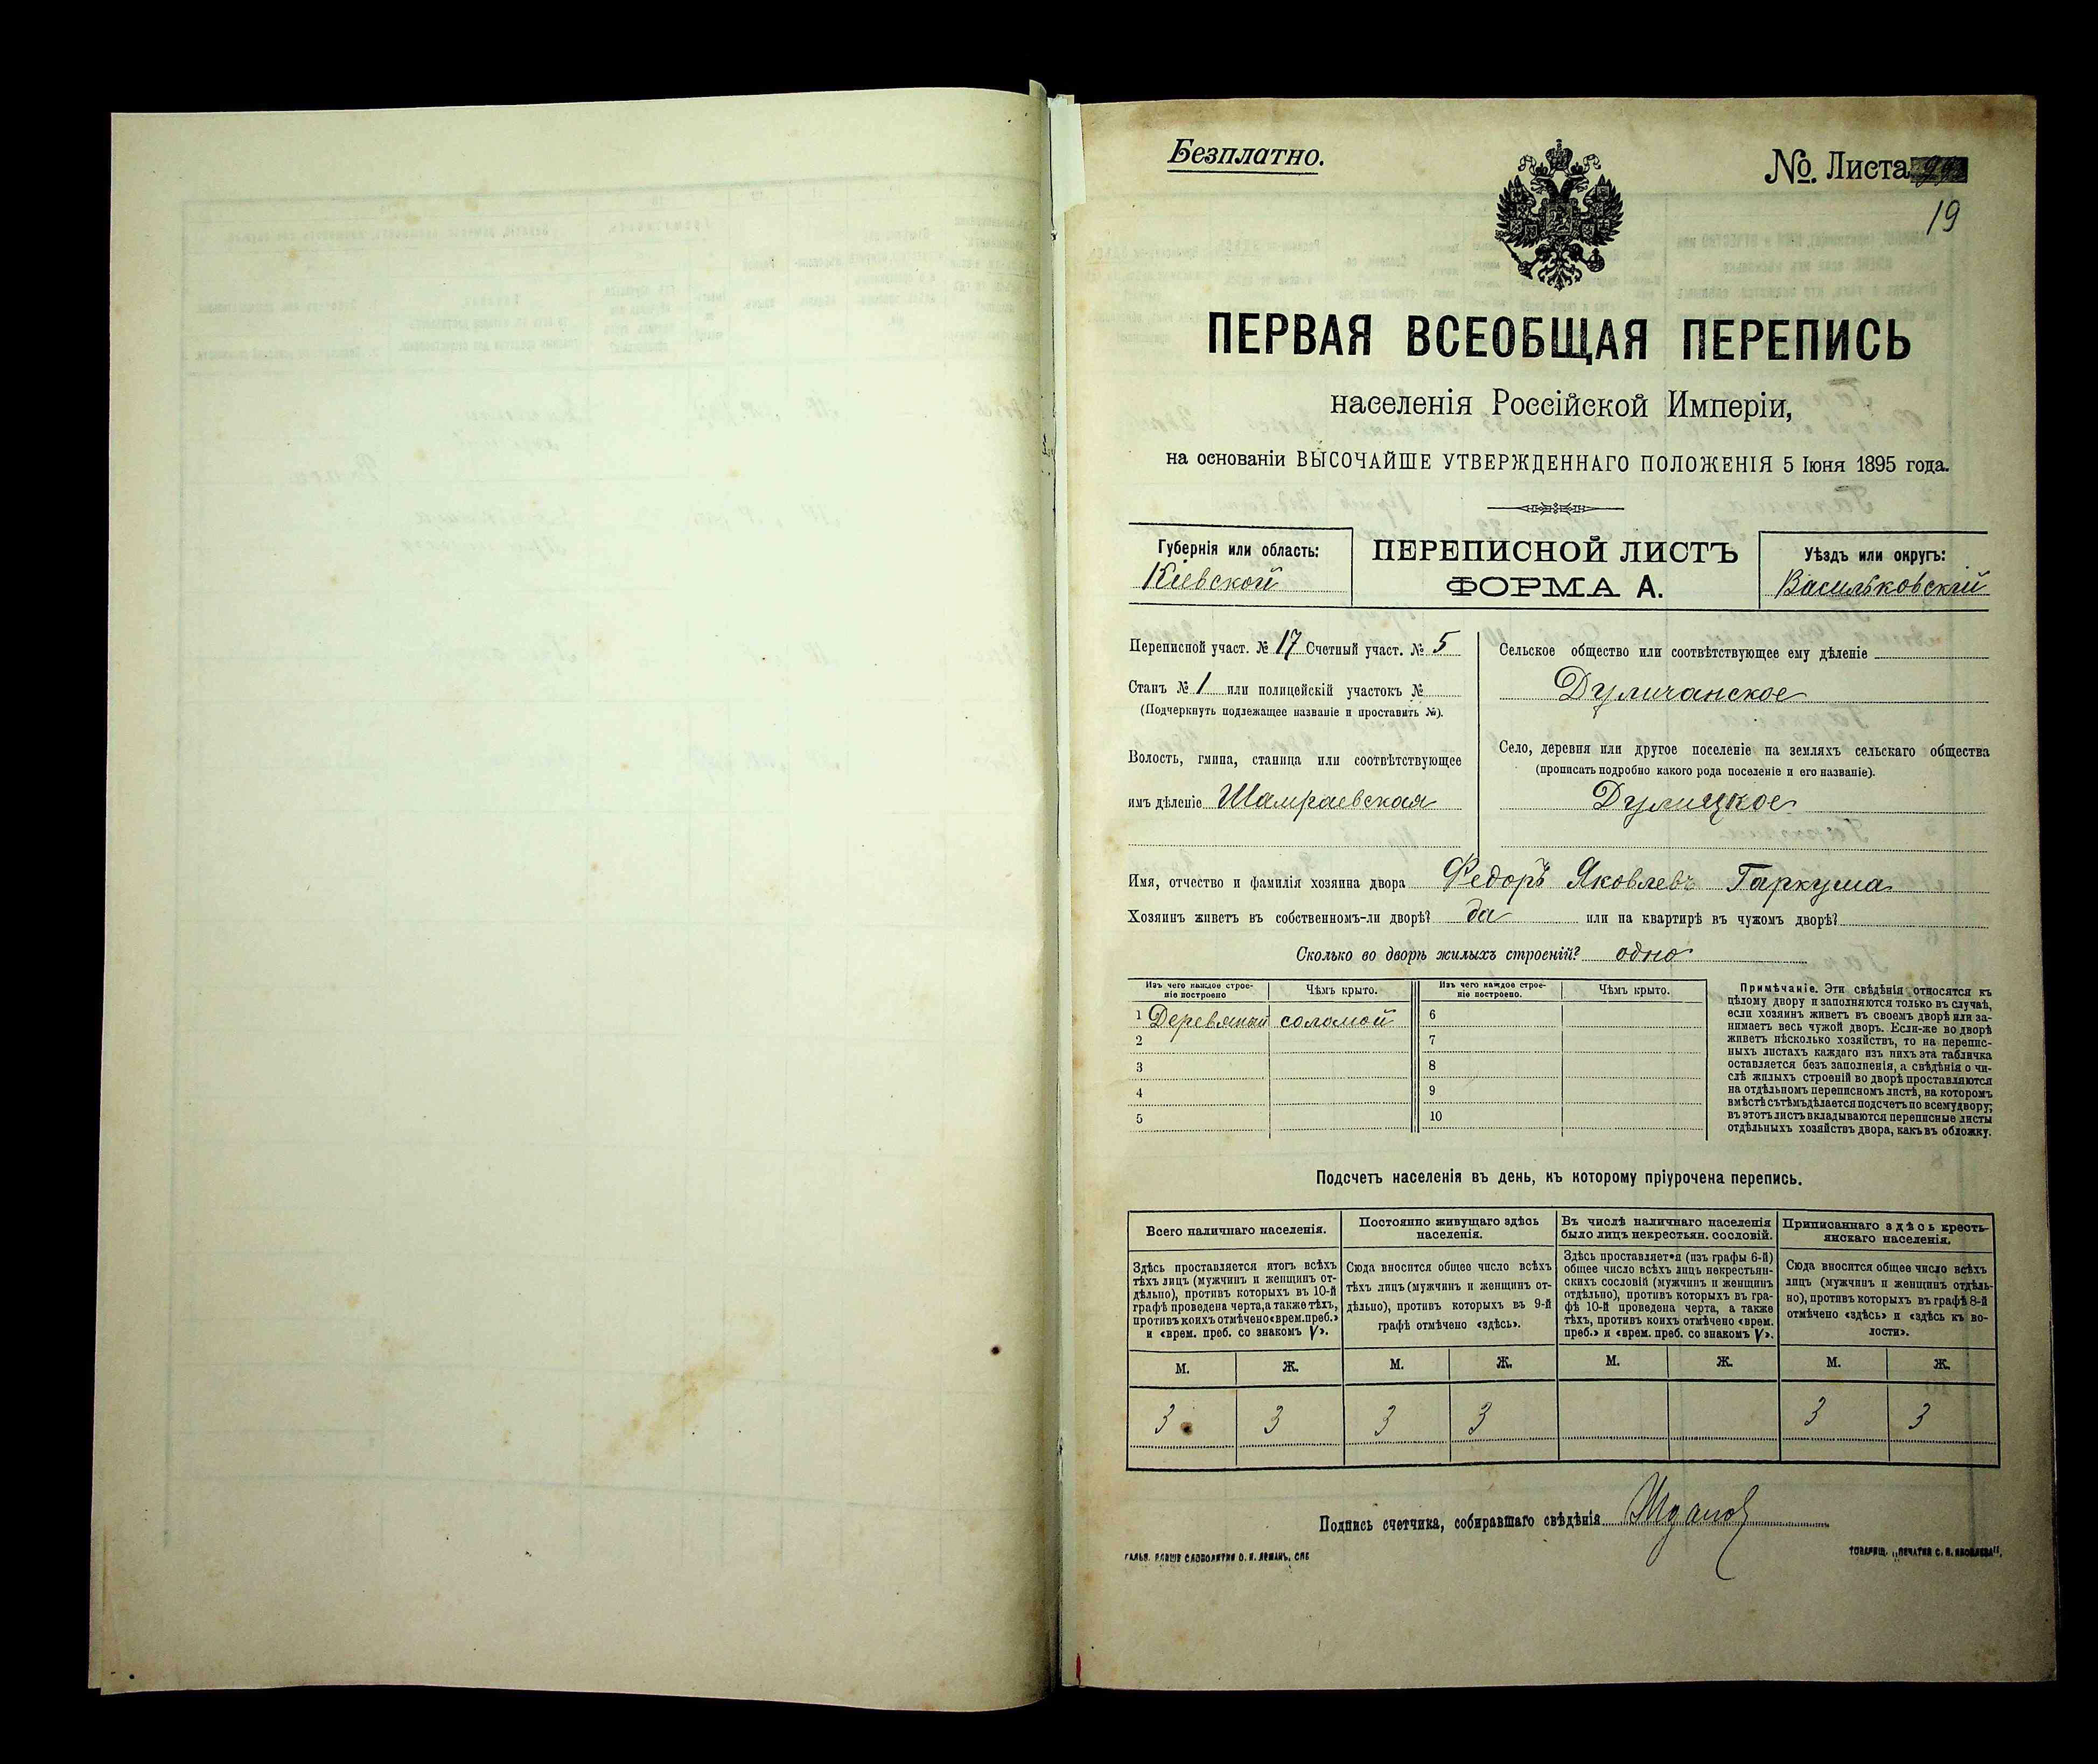 Безплатно.
№ Листа
19
ПЕРВАЯ ВСЕОБЩАЯ ПЕРЕПИСЬ
населенія Россійской Имперіи,
на основаніи ВЫСОЧАЙШЕ УТВЕРЖДЕННАГО ПОЛОЖЕНІЯ 5 Іюня 1895 года.
Губернія или область:
Кіевской
ПЕРЕПИСНОЙ ЛИСТЪ
ФОРМА А.
Уѣздъ или округъ:
Васильковскій
Переписной участ. № 17 Счетный участ. № 5
Станъ № 1 или полицейскій участокъ №
(Подчеркнуть подлежащее названіе и проставить №).
Волость, гмина, станица или соотвѣтствующее
имъ дѣленіе Шамраевская
Сельское общество или соотвѣтствующее ему дѣленіе
Дуличанское
Село, деревня или другое поселеніе на земляхъ сельскаго общества
(прописать подробно какого рода поселеніе и его названіе).
Дулицкое
Имя, отчество и фамилія хозяина двора Федоръ Яковлевъ Гаркуша
Хозяинъ живетъ въ собственномъ-ли дворѣ? да или на квартирѣ въ чужомъ дворѣ?
Сколько во дворѣ жилыхъ строеній? одно
Изъ чего каждое строе-
ніе построено
Чѣмъ крыто.
Изъ чего каждое строе-
ніе построено.
Чѣмъ крыто.
1 соломой
2
3
4
5
6
7
8
9
10
Примѣчаніе. Эти свѣдѣнія относятся къ
цѣлому двору и заполняются только въ случаѣ,
если хозяинъ живетъ въ своемъ дворѣ или за-
нимаетъ весь чужой дворъ. Если-же во дворѣ
живетъ нѣсколько хозяйствъ, то на перепис-
ныхъ листахъ каждаго изъ нихъ эта табличка
оставляется безъ заполненія, а свѣдѣнія о чи-
слѣ жилыхъ строеній во дворѣ проставляются
на отдѣльномъ переписномъ листѣ, на которомъ
вмѣстѣ съ тѣмъ дѣлается подсчетъ по всему двору;
въ этотъ листъ вкладываются переписные листы
отдѣльныхъ хозяйствъ двора, какъ въ обложку.
Подсчетъ населенія въ день, къ которому пріурочена перепись.
Всего наличнаго населенія.
Здѣсь проставляется итогъ всѣхъ
тѣхъ лицъ (мужчинъ и женщинъ от-
дѣльно), противъ которыхъ въ 10-й
графѣ проведена черта, а также тѣхъ,
противъ коихъ отмѣчено «врем. преб.»
и «врем. преб. со знакомъ V».
Постоянно живущаго здѣсь
населенія.
Сюда вносится общее число всѣхъ
тѣхъ лицъ (мужчинъ и женщинъ от-
дѣльно), противъ которыхъ въ 9-й
графѣ отмѣчено «здѣсь».
Въ числѣ наличнаго населенія
было лицъ некрестьян. сословій.
Здѣсь проставляется (изъ графы 6-й)
общее число всѣхъ лицъ некрестьян-
скихъ сословій (мужчинъ и женщинъ
отдѣльно), противъ которыхъ въ гра-
фѣ 10-й проведена черта, а также
тѣхъ, противъ коихъ отмѣчено «врем.
преб.» и «врем. преб. со знакомъ V».
Приписаннаго здѣсь кресть-
янскаго населенія.
Сюда вносится общее число всѣхъ
лицъ (мужчинъ и женщинъ отдѣль-
но), противъ которыхъ въ графѣ 8-й
отмѣчено «здѣсь» и «здѣсь къ во-
лости».
М. Ж. М. Ж. М. Ж. М. Ж.
3 3 3 3 3 3
Подпись счетчика, собиравшаго свѣдѣнія
ТОВАРИЩ. „ПЕЧАТНЯ С. П. ЯКОВЛЕВА".